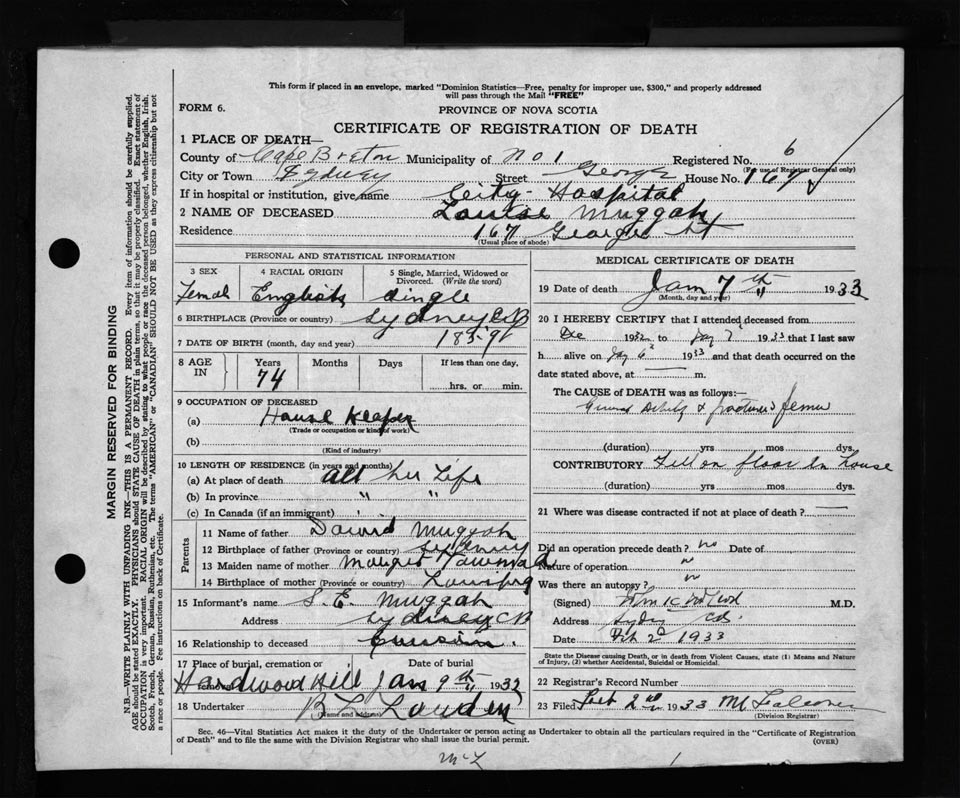 This form if placed in an envelope, marked "Dominion Statistics—Free, penalty for improper use, $300," and properly addressed
will pass through the Mail "FREE"
FORM 6.
PROVINCE OF NOVA SCOTIA
CERTIFICATE OF REGISTRATION OF DEATH
1 PLACE OF DEATH—
County of Cape Breton Municipality of No 1 Registered No. 6
(For use of Registrar General only)
City or Town Sydney Street George House No. 167
If in hospital or institution, give name City Hospital
2 NAME OF DECEASED Louise Muggah
Residence 167 George St
(Usual place of abode)
PERSONAL AND STATISTICAL INFORMATION
3 SEX 4 RACIAL ORIGIN 5 Single, Married, Widowed or Divorced. (Write the word)
Femal English Single
6 BIRTHPLACE (Province or country) Sydney C B
7 DATE OF BIRTH (month, day and year) 1859
8 AGE IN Years Months Days If less than one day,
74
hrs. or min.
9 OCCUPATION OF DECEASED
(a) House Keeper
(Trade or occupation or kind of work)
(b)
(Kind of industry)
10 LENGTH OF RESIDENCE (in years and months)
(a) At place of death all her Life
(b) In province " "
(c) In Canada (if an immigrant)
Parents
11 Name of father David Muggah
12 Birthplace of father (Province or country) Sydney
13 Maiden name of mother
14 Birthplace of mother (Province or country)
15 Informant's name S. E. Muggah
Address Sydney C B
16 Relationship to deceased Cousin.
17 Place of burial, cremation or removal Date of burial
Hardwood Hill Jan 9th 1933
18 Undertaker
(Name and address)
MEDICAL CERTIFICATE OF DEATH
19 Date of death Jan 7th 1933
(Month, day and year)
20 I HEREBY CERTIFY that I attended deceased from
Dec 1932 to Jan 7 1933 that I last saw
h alive on Jan 6 1933 and that death occurred on the
date stated above, at — m.
The CAUSE OF DEATH was as follows:
General Debility & fractured femur
(duration) yrs mos dys.
CONTRIBUTORY Fell on floor in house
(duration) yrs mos dys.
21 Where was disease contracted if not at place of death? —
Did an operation precede death? no Date of
Nature of operation
Was there an autopsy? no
(Signed) M.D.
Address Sydney CB.
Date Feb 2d 1933
State the Disease causing Death, or in death from Violent Causes, state (1) Means and Nature
of Injury, (2) whether Accidental, Suicidal or Homicidal.
22 Registrar's Record Number
23 Filed Feb 2nd 1933
(Division Registrar)
Sec. 46—Vital Statistics Act makes it the duty of the Undertaker or person acting as Undertaker to obtain all the particulars required in the "Certificate of Registration
of Death" and to file the same with the Division Registrar who shall issue the burial permit. (OVER)
MARGIN RESERVED FOR BINDING
N.B.—WRITE PLAINLY WITH UNFADING INK—THIS IS A PERMANENT RECORD. Every item of information should be carefully supplied.
AGE should be stated EXACTLY. PHYSICIANS should STATE CAUSE OF DEATH in plain terms, so that it may be properly classified. Exact statement of
OCCUPATION is very important. RACIAL ORIGIN will be described by stating to what people or race the deceased person belonged, whether English, Irish,
Scotch, French, German, Russian, Ruthenian, etc. The terms "AMERICAN" or "CANADIAN" SHOULD NOT BE USED as they express citizenship but not
a race or people. Fee instructions on back of Certificate.